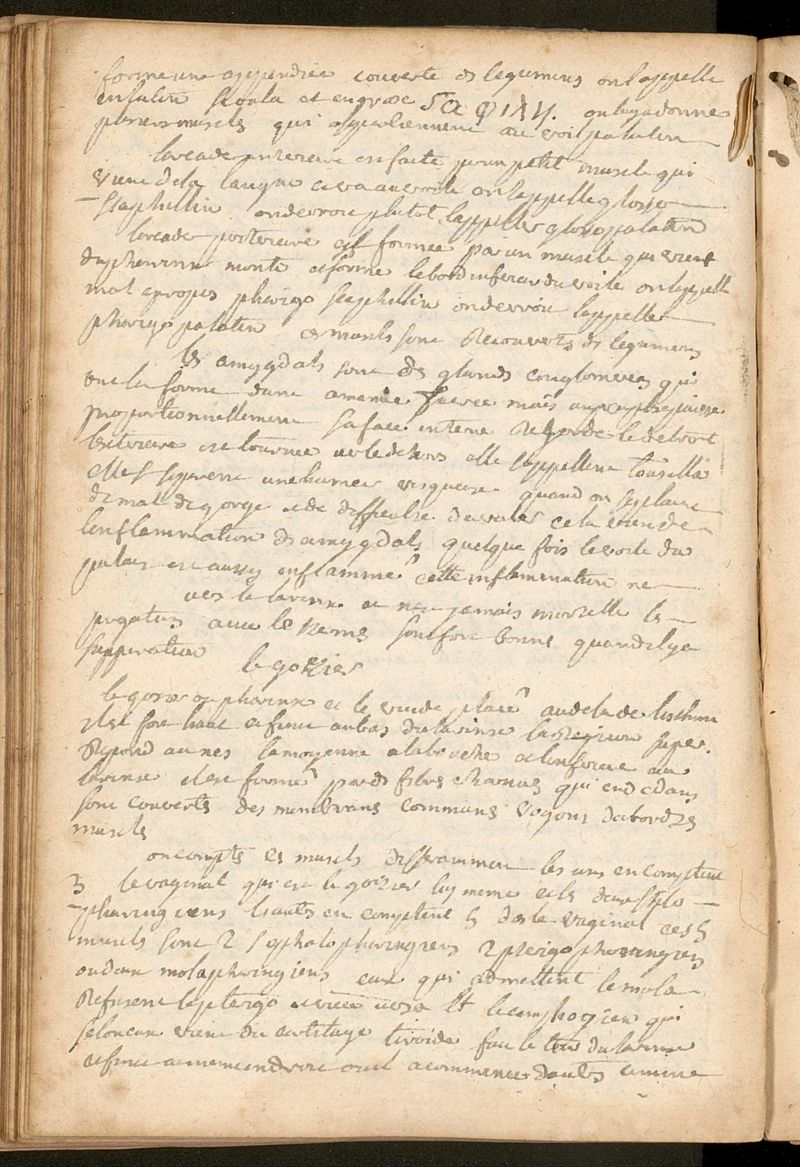 forme une appendice couverte des legumens on l'appelle
en latin et en grec σταφιλη. on luy a donné
plusieurs muscles qui appartiennent au voil palatin
larcade anterieure est faite par un petit muscle qui
vient de la langue et va au voile on lappelle glosso
staphillin on devroit plutot lappeller glosso palatin
larcade posterieure est formée par un muscle qui vient
du pharinx monte et forme le bord inferieur du voile on lappelle
mal apropos pharigo staphillin on devroit lappeller
pharigo palatin ces muscls sont recouverts des legumens
les amygdals sont des glands conglomerés qui
ont la forme dune amende mais un peu plus
proportionnellement sa face interne regarde le detroit
lexterieure est tournée vers le dehors elle sappellent tonsilla
elles sepparent une humeur visqueuse. quand on se plaint
de mal de gorge et de difficulté davaler cela vient de
linflammation des amygdals quelque fois le voile du
palais est aussy enflammé cette inflammation ne
vers le larinx et nest jamais mortelle les
purgatifs avec le Kermes sont fort bonns quand il y a
supporation
le gozier
le gozier ou pharinx est le vuide placé au dela de listhme
il est fort haut et finit au bas du larinx la region super.
repond au nes la moyenne a la bouche et linferieure au
larinx il est formé par des fibres charnues qui en dedans
sont couverts des membrans communs voyons dabord les
muscls
on compte ces muscls differamment les uns en comptent
3 le vaginal qui est le gozier luy meme et les deux stilo
pharingiens dautres en comptent 5 des le vaginal ces 5
muscls sont 2 sephalopharingiens 2 pterigopharingiens
ou deux molapharingiens ceux qui admettent le mola
refusent le pterigo et vice versa le qui
selon eux vient du cartilage tiroide fait le tour du larinx
et finit au meme endroit ou il a commencé dautres